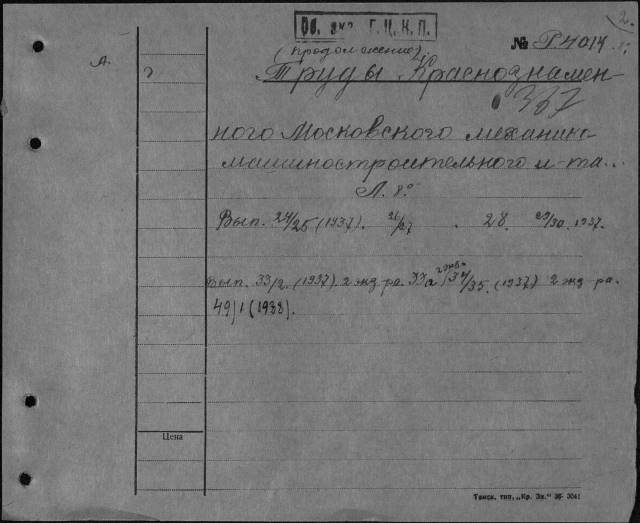 Об. экз. Г.Ц.К.П.
2.
№ Р4014
(продолжение).
Труды Краснознамен-
337
ного Московского механико-
машиностроительного и-та...
Л. 8°
Вып. 24/25 (1937). 26/27 . 28. 29/30. 1937.
Вып. 33/2. (1937) 2 экз ра. 33а 34/35. (1937) 2 экз ра.
49/1 (1938).
Цена
Томск. тип. „Кр. Зн." 36- 3041